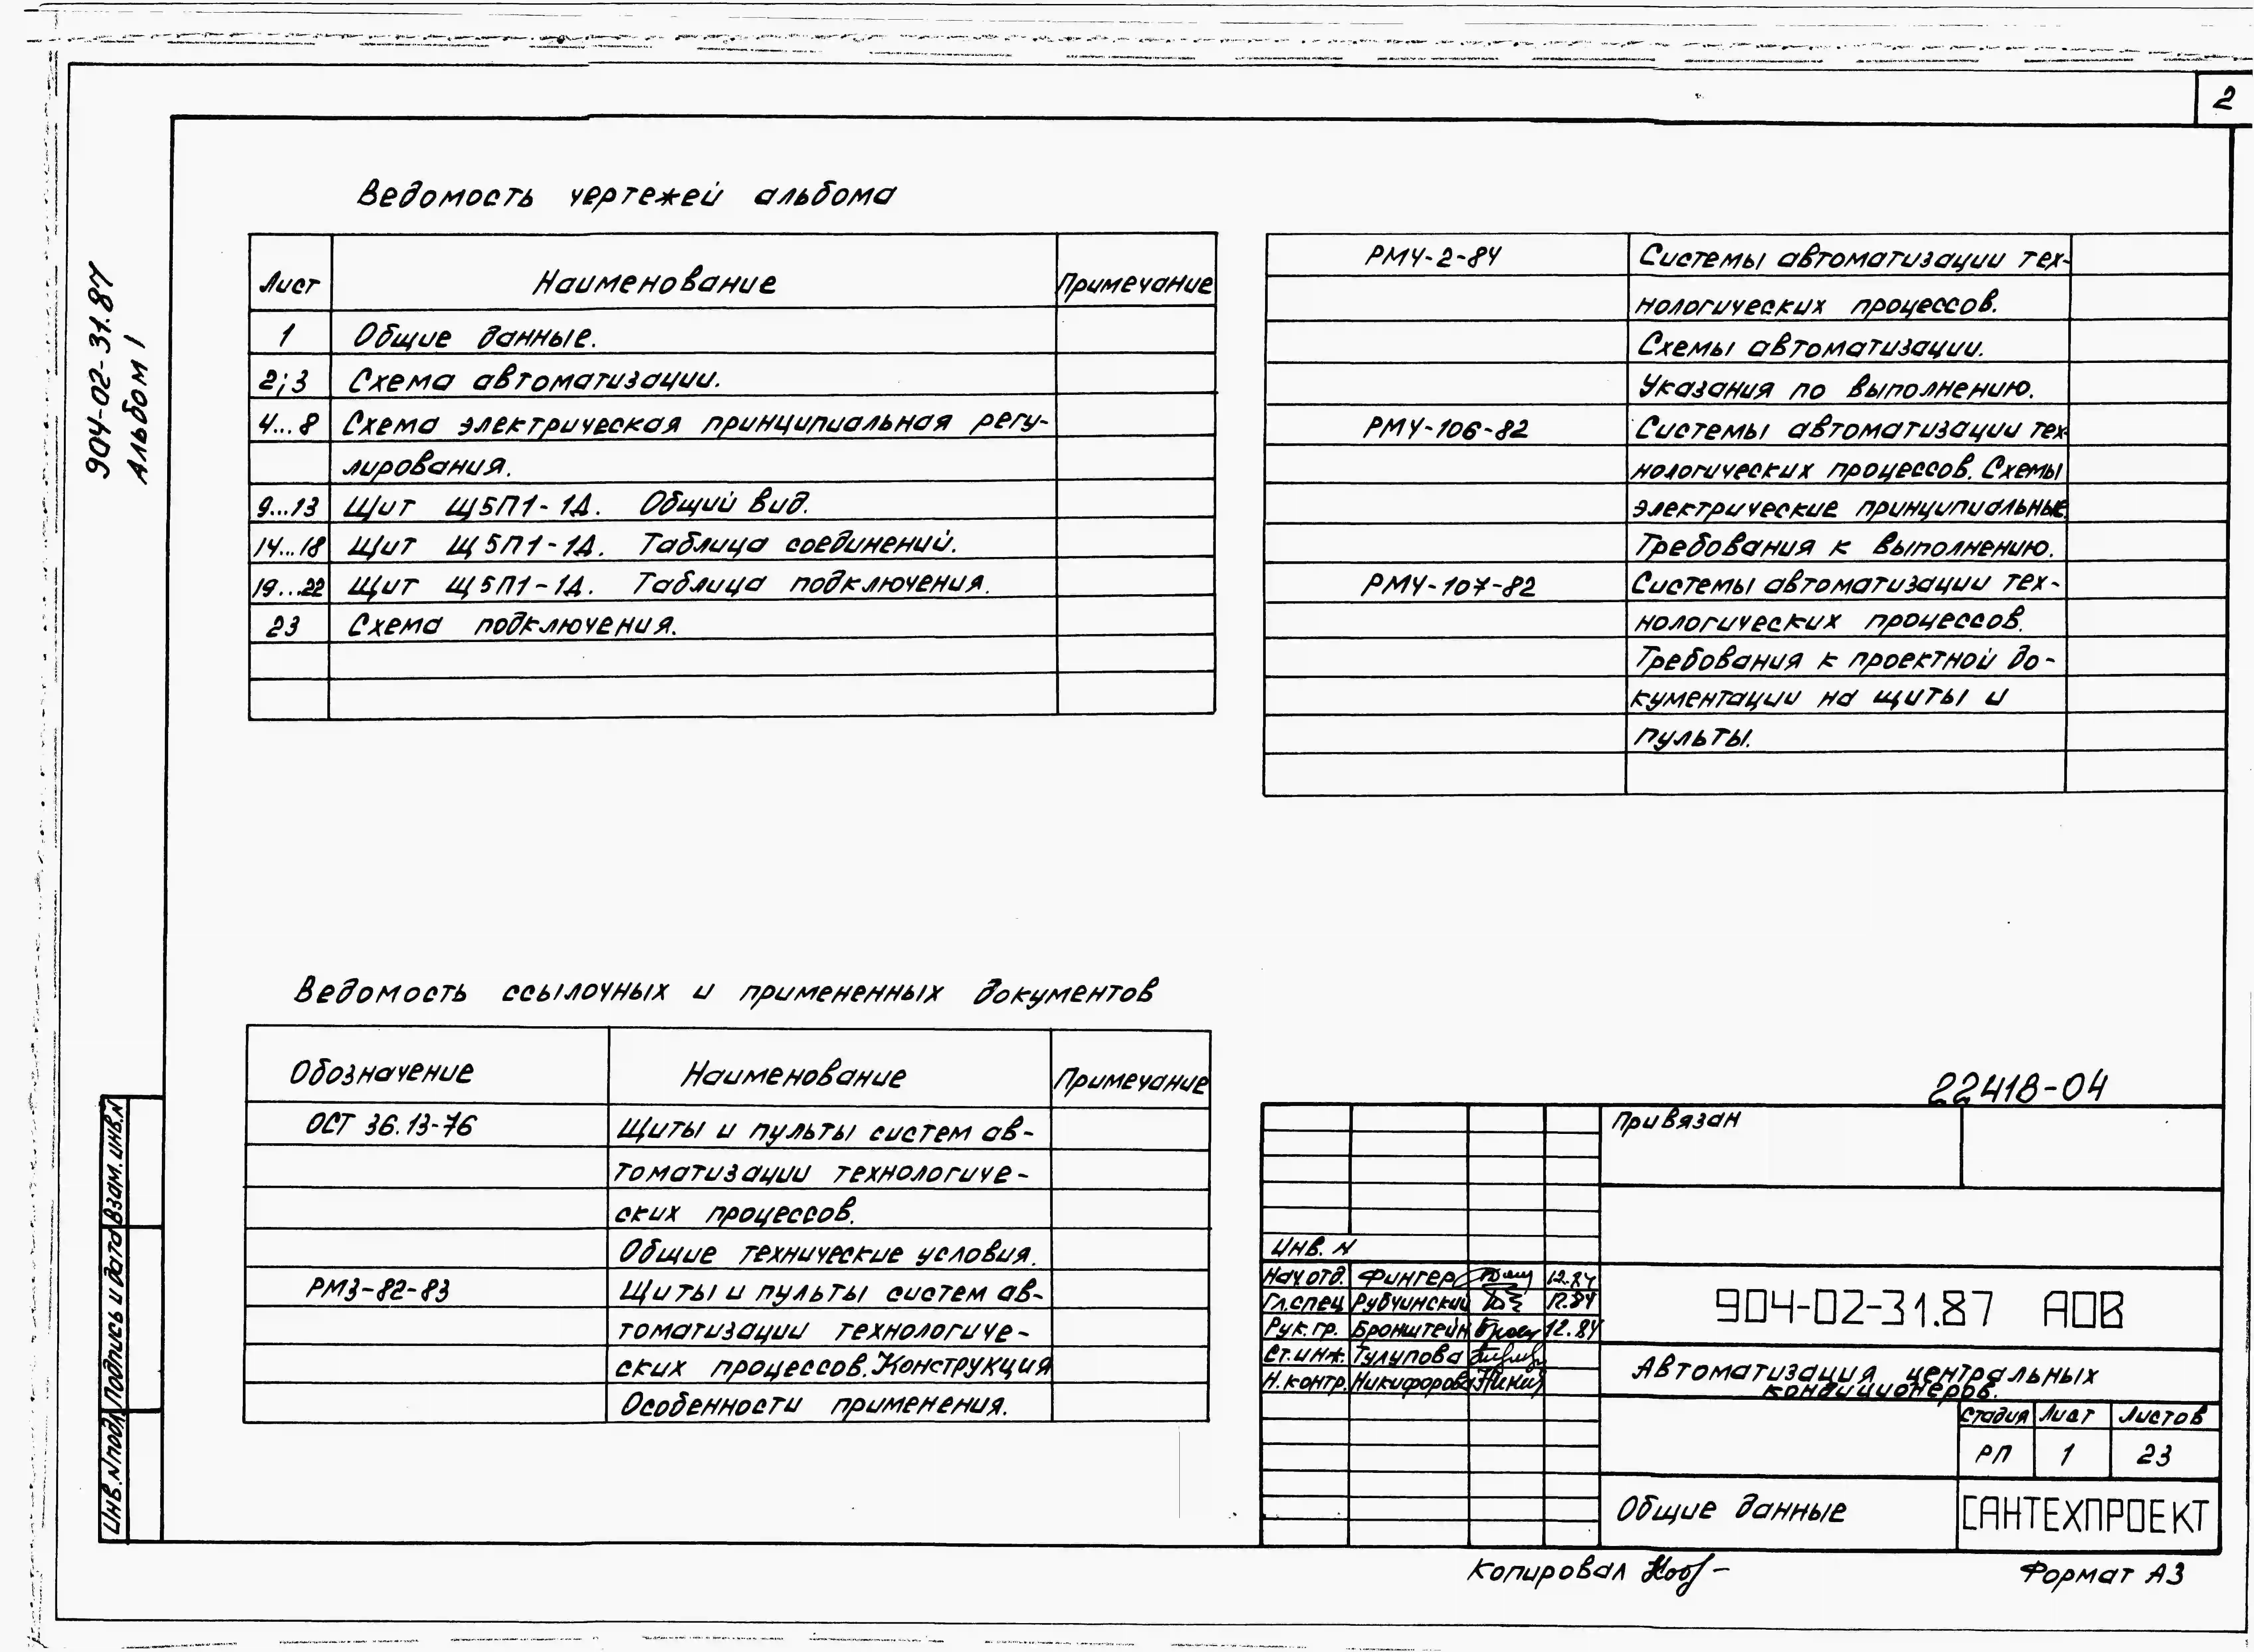 2
904-02-31.87
Альбом 1
Ведомость чертежей альбома
Лист Наименование Примечание
1 Общие данные.
2;3 Схема автоматизации.
4...8 Схема электрическая принципиальная регу-
лирования.
9...13 Щит Щ5П1-1Д. Общий вид.
14...18 Щит Щ5П1-1Д. Таблица соединений.
19...22 Щит Щ5П1-1Д. Таблица подключения.
23 Схема подключения.
РМ4-2-84 Системы автоматизации тех-
нологических процессов.
Схемы автоматизации.
Указания по выполнению.
РМ4-106-82 Системы автоматизации тех-
нологических процессов. Схемы
электрические принципиальные.
Требования к выполнению.
РМ4-107-82 Системы автоматизации тех-
нологических процессов.
Требования к проектной до-
кументации на щиты и
пульты.
Ведомость ссылочных и примененных документов
Обозначение Наименование Примечание
ОСТ 36.13-76 Щиты и пульты систем ав-
томатизации технологиче-
ских процессов.
Общие технические условия.
РМ3-82-83 Щиты и пульты систем ав-
томатизации технологиче-
ских процессов. Конструкция
Особенности применения.
Взам. инв. N
Подпись и дата
Инв. N подл.
22418-04
Привязан
Инв. N
Нач. отд. Фингер 12.84
Гл. спец Рубчинский 12.84
Рук. гр. Бронштейн 12.84
Ст. инж. Тулупова
Н. контр. Никифорова
904-02-31.87 АОВ
Автоматизация центральных
кондиционеров.
Стадия Лист Листов
РП 1 23
Общие данные
САНТЕХПРОЕКТ
Копировал
Формат А3